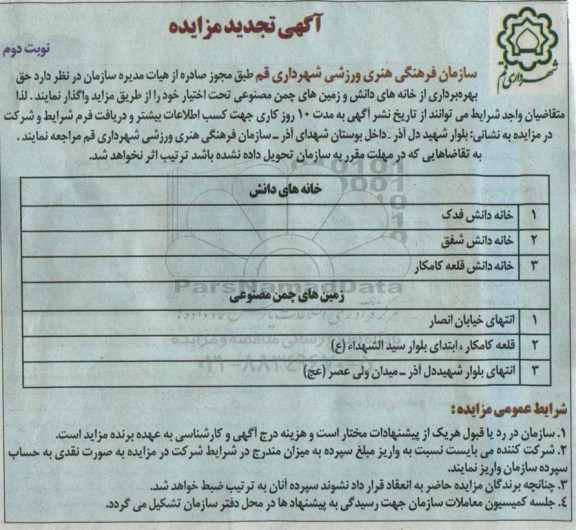 آگهی تجدید مزایده
نوبت دوم
شهرداری قم
سازمان فرهنگی هنری ورزشی شهرداری قم طبق مجوز صادره از هیات مدیره سازمان در نظر دارد حق
بهره‌برداری از خانه های دانش و زمین های چمن مصنوعی تحت اختیار خود را از طریق مزاید واگذار نمایند . لذا
متقاضیان واجد شرایط می توانند از تاریخ نشر آگهی به مدت ۱۰ روز کاری جهت کسب اطلاعات بیشتر و دریافت فرم شرایط و شرکت
در مزایده به نشانی: بلوار شهید دل آذر ـ داخل بوستان شهدای آذر ـ سازمان فرهنگی هنری ورزشی شهرداری قم مراجعه نمایند .
به تقاضاهایی که در مهلت مقرر به سازمان تحویل داده نشده باشد ترتیب اثر نخواهد شد.
خانه های دانش
۱ خانه دانش فدک
۲ خانه دانش شفق
۳ خانه دانش قلعه کامکار
ParsNamadData
زمین های چمن مصنوعی
۱ انتهای خیابان انصار
۲ قلعه کامکار ، ابتدای بلوار سید الشهداء (ع)
۳ انتهای بلوار شهیددل آذر ـ میدان ولی عصر (عج)
شرایط عمومی مزایده :
۱. سازمان در رد یا قبول هریک از پیشنهادات مختار است و هزینه درج آگهی و کارشناسی به عهده برنده مزاید است.
۲. شرکت کننده می بایست نسبت به واریز مبلغ سپرده به میزان مندرج در شرایط شرکت در مزایده به صورت نقدی به حساب
سپرده سازمان واریز نمایند.
۳. چنانچه برندگان مزایده حاضر به انعقاد قرار داد نشوند سپرده آنان به ترتیب ضبط خواهد شد.
۴. جلسه کمیسیون معاملات سازمان جهت رسیدگی به پیشنهاد ها در محل دفتر سازمان تشکیل می گردد.